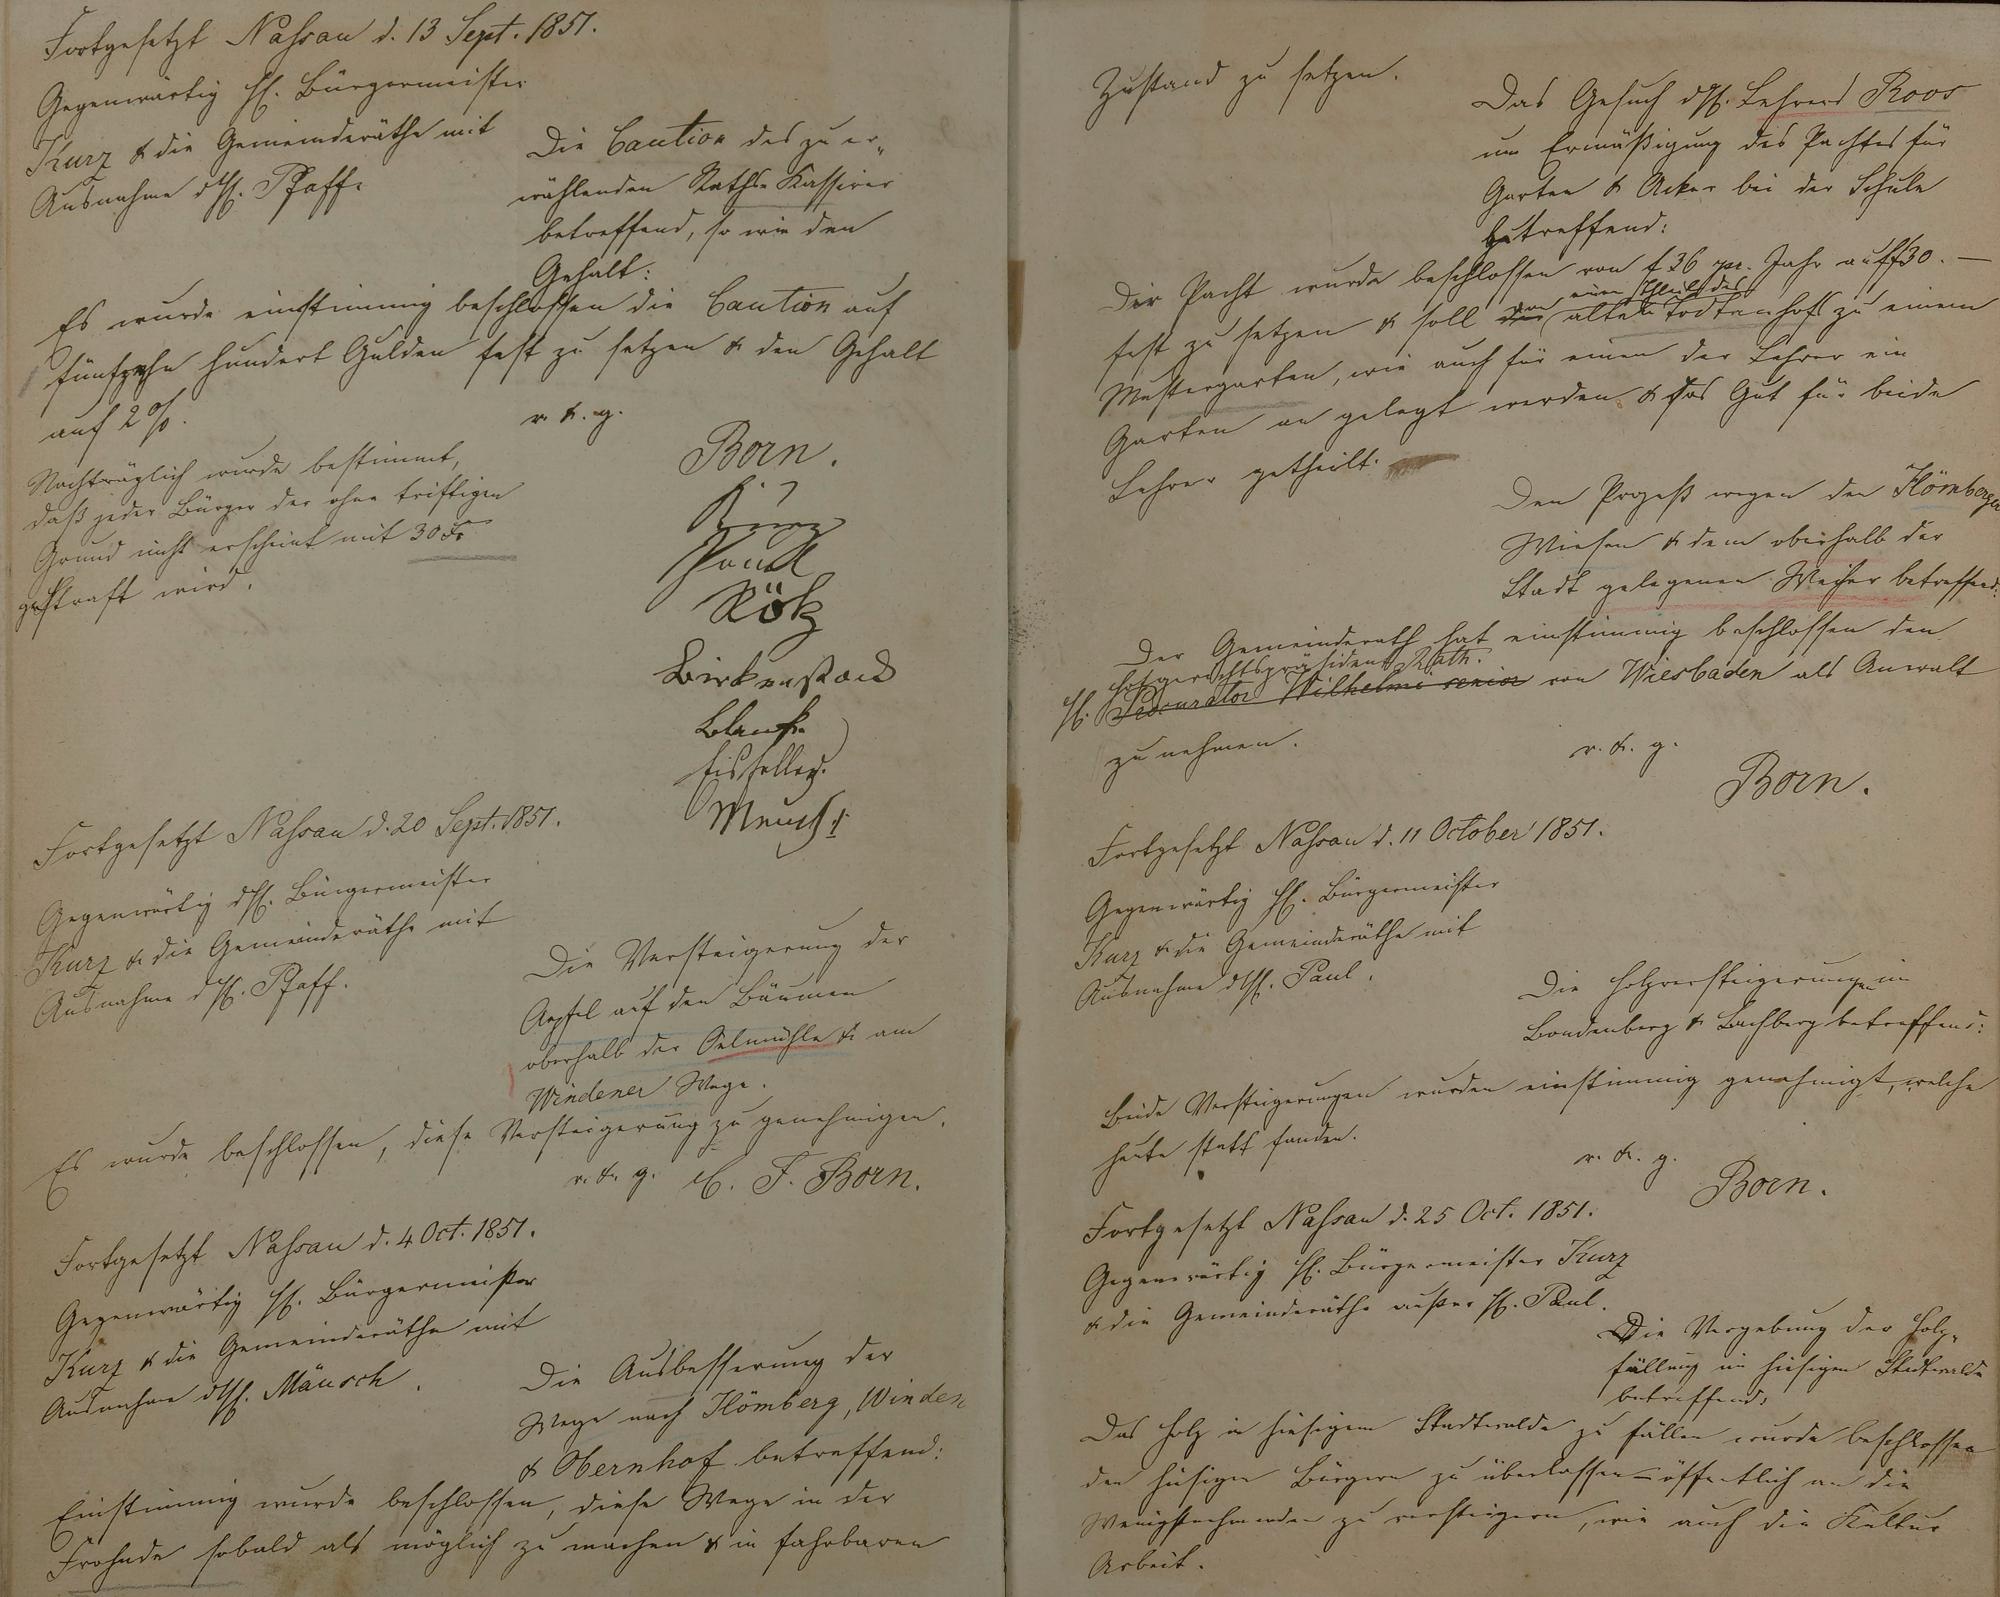 Fortgesetzt Nassau d. 13 Sept. 1851.
Gegenwärtig H. Bürgermeister
Kurz & die Gemeinderäthe mit
Ausnahme d H. Pfaff.
Die Caution des zu er-
wählenden Raths-Kassirer
betreffend, so wie den
Gehalt:
Es wurde einstimmig beschlossen die Caution auf
fünfzehn hundert Gulden fest zu setzen & den Gehalt
auf 2 %.
v. & g.
Nachträglich wurde bestimmt,
daß jeder Bürger der ohne triftigen
Grund nicht erscheint mit 30 Xr
gestraft wird.
Born.
Kurz
Paul
Rötz
Birkenstock
Blank
Eisfeller.
Meusch
Fortgesetzt Nassau d. 20 Sept. 1851.
Gegenwärtig d H. Bürgermeister
Kurz & die Gemeinderäthe mit
Ausnahme d H. Pfaff.
Die Versteigerung der
Aepfel auf den Bäumen
oberhalb der Oelmühle & am
Windener Wege.
Es wurde beschlossen, diese Versteigerung zu genehmigen.
v. & g. C. F. Born.
Fortgesetzt Nassau d. 4 Oct. 1851.
Gegenwärtig H. Bürgermeister
Kurz & die Gemeinderäthe mit
Ausnahme d H. Mäusch.
Die Ausbesserung der
Wege nach Hömberg, Winden
& Obernhof betreffend:
Einstimmig wurde beschlossen, diese Wege in der
Frohnde sobald als möglich zu machen & in fahrbaren
Zustand zu setzen.
Das Gesuch d H. Lehrers Roos
um Ermäßigung des Pachtes für
Garten & Acker bei der Schule
betreffend:
Der Pacht wurde beschlossen von f 36 pr. Jahr auf f 30. —
fest zu setzen & soll ein Theil des alten Todtenhofs zu einem
Mustergarten, wie auch für einen der Lehrer ein
Garten an gelegt werden & das Gut für beide
Lehrer getheilt.
Den Prozeß wegen der Hömberger
Wiesen & dem oberhalb der
Stadt gelegenen Weiher betreffend:
Der Gemeinderath hat einstimmig beschlossen den
Hofgerichtspräsident Rath.
H. Procurator Wilhelmi senior von Wiesbaden als Anwalt
zu nehmen.
v. & g.
Born.
Fortgesetzt Nassau d. 11 October 1851.
Gegenwärtig H. Bürgermeister
Kurz & die Gemeinderäthe mit
Ausnahme d H. Paul.
Die Holzversteigerungen im
&
betreffend:
Beide Versteigerungen wurden einstimmig genehmigt, welche
heute statt fanden.
v. & g.
Born.
Fortgesetzt Nassau d. 25 Oct. 1851.
Gegenwärtig H. Bürgermeister Kurz
& die Gemeinderäthe außer H. Paul.
Die Vergebung der Holz-
fällung im hiesigen Stadtwalde
betreffend:
Das Holz in hiesigem Stadtwalde zu fällen wurde beschlossen
den hiesigen Bürgern zu überlassen – öffentlich an die
Wenigstnehmenden zu versteigern, wie auch die Kultur
Arbeit.